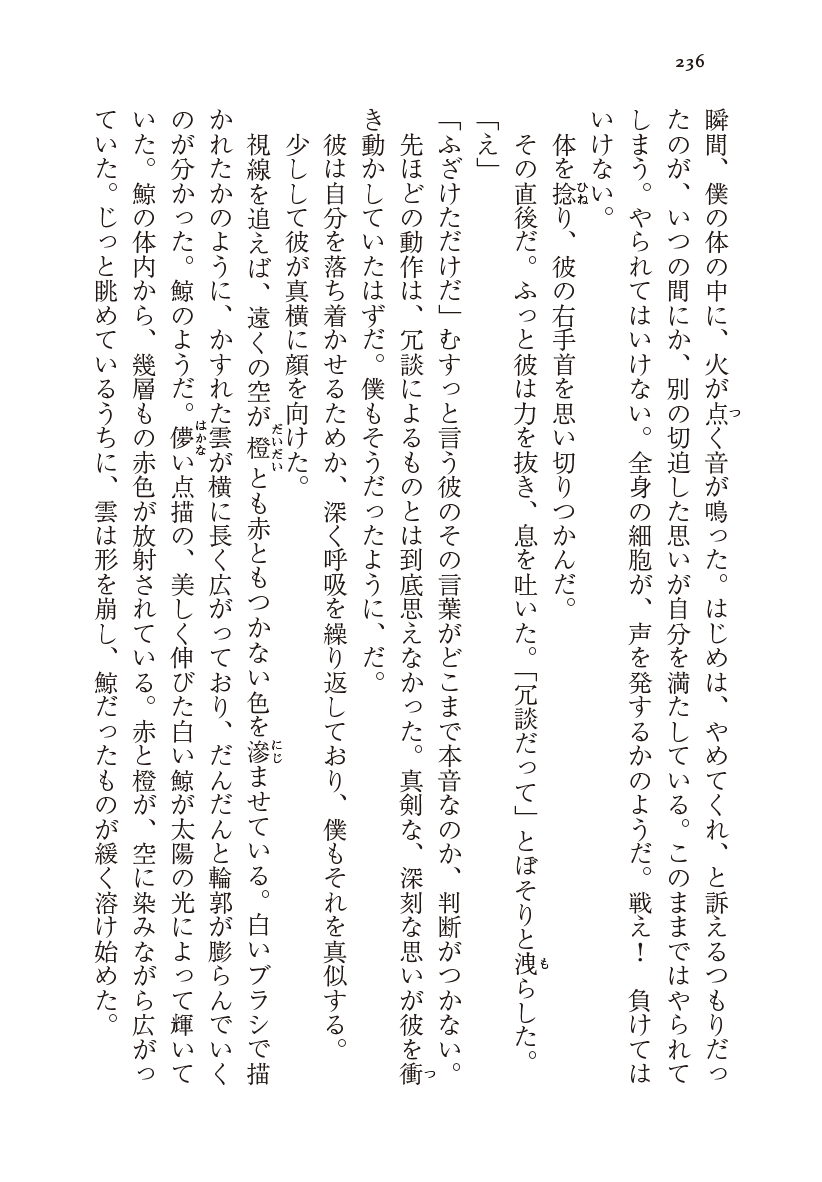 236
瞬間、僕の体の中に、火が点く音が鳴った。はじめは、やめてくれ、と訴えるつもりだっ
たのが、いつの間にか、別の切迫した思いが自分を満たしている。このままではやられて
しまう。やられてはいけない。全身の細胞が、声を発するかのようだ。戦え！　負けては
いけない。
　体を捻り、彼の右手首を思い切りつかんだ。
　その直後だ。ふっと彼は力を抜き、息を吐いた。「冗談だって」とぼそりと洩らした。
「え」
「ふざけただけだ」むすっと言う彼のその言葉がどこまで本音なのか、判断がつかない。
　先ほどの動作は、冗談によるものとは到底思えなかった。真剣な、深刻な思いが彼を衝
き動かしていたはずだ。僕もそうだったように、だ。
　彼は自分を落ち着かせるためか、深く呼吸を繰り返しており、僕もそれを真似する。
　少しして彼が真横に顔を向けた。
　視線を追えば、遠くの空が橙とも赤ともつかない色を滲ませている。白いブラシで描
かれたかのように、かすれた雲が横に長く広がっており、だんだんと輪郭が膨らんでいく
のが分かった。鯨のようだ。儚い点描の、美しく伸びた白い鯨が太陽の光によって輝いて
いた。鯨の体内から、幾層もの赤色が放射されている。赤と橙が、空に染みながら広がっ
ていた。じっと眺めているうちに、雲は形を崩し、鯨だったものが緩く溶け始めた。